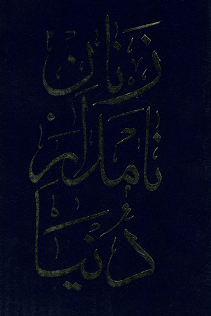 زنان
نامدار
دنیا